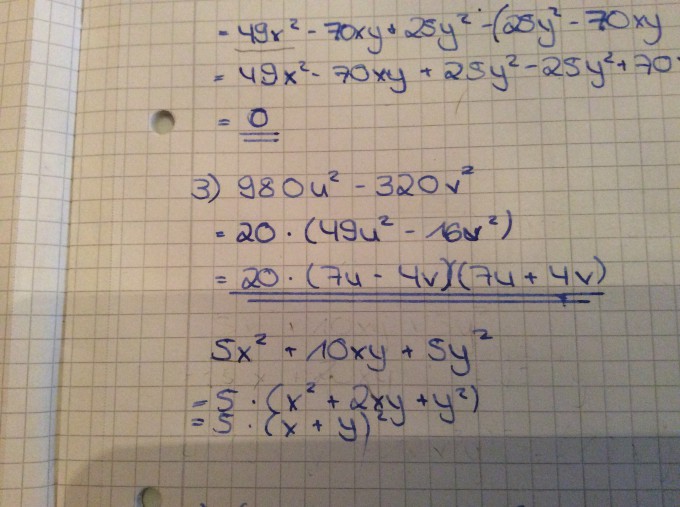 = 49x² - 70xy + 25y² - (25y² - 70xy
= 49x² - 70xy + 25y² - 25y² + 70
= 0
3) 980u² - 320v²
= 20 · (49u² - 16v²)
= 20 · (7u - 4v)(7u + 4v)
5x² + 10xy + 5y²
= 5 · (x² + 2xy + y²)
= 5 · (x + y)²